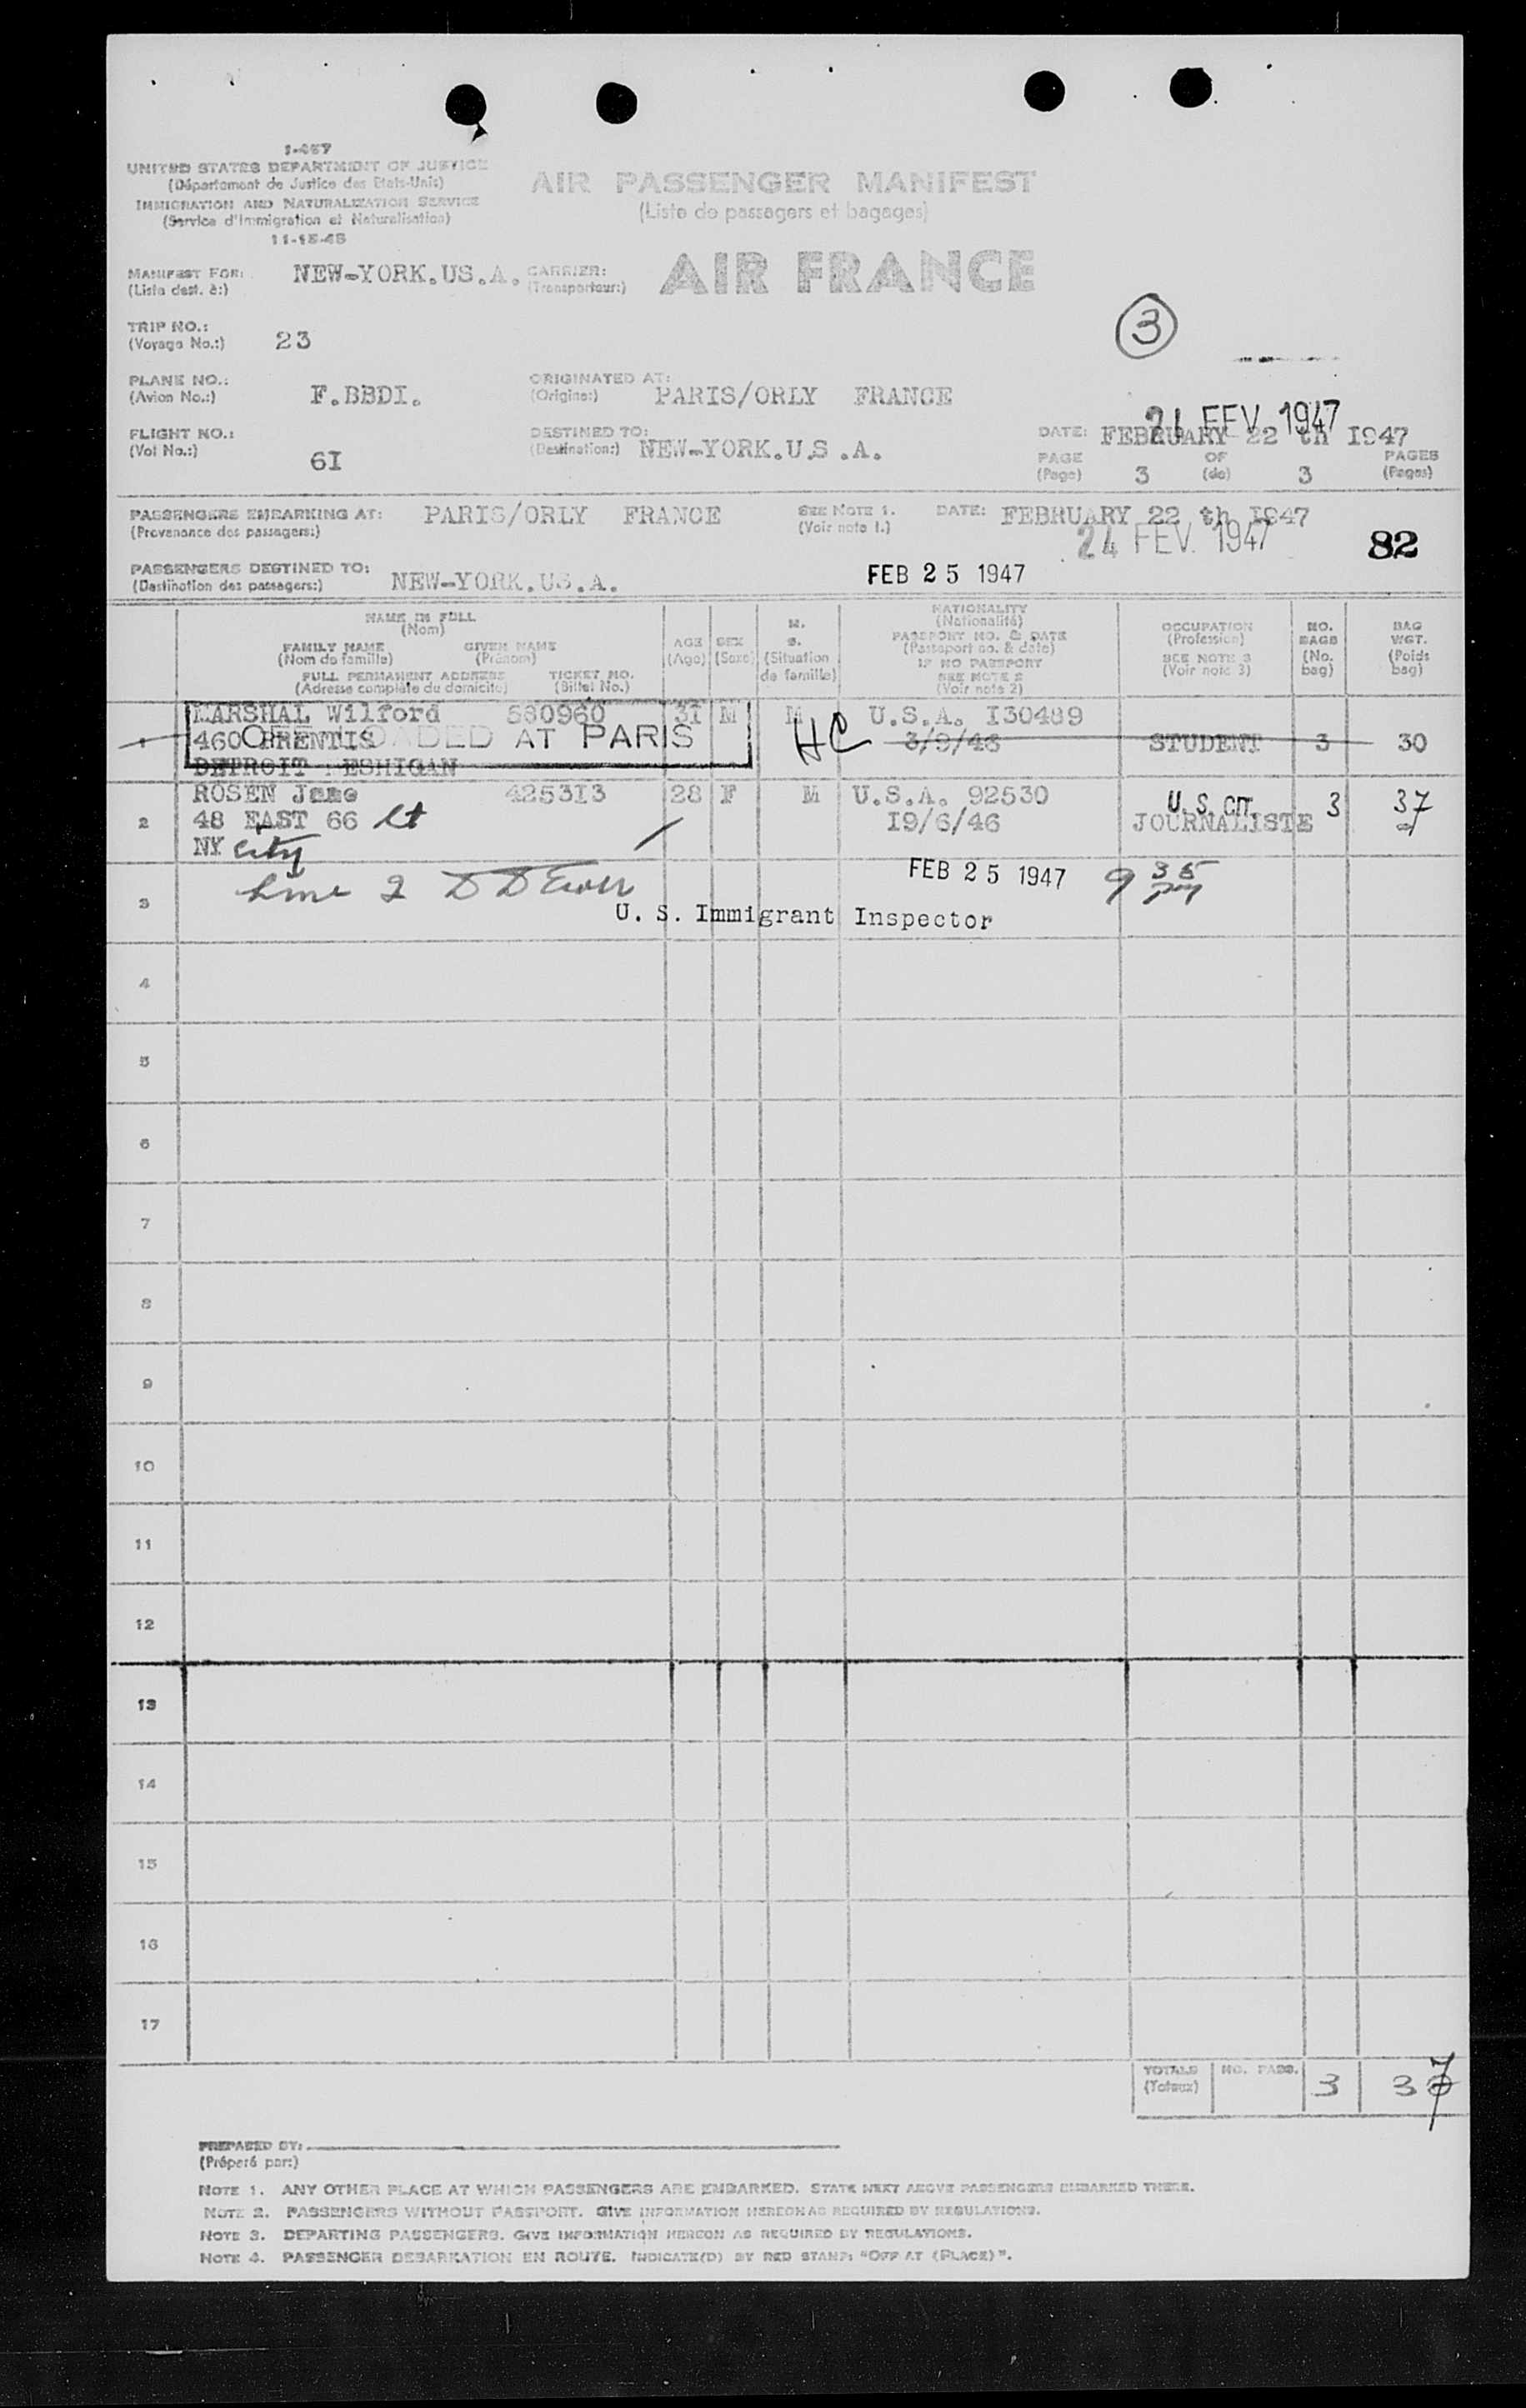 I-467
UNITED STATES DEPARTMENT OF JUSTICE
(Département de Justice des Etats-Unis)
IMMIGRATION AND NATURALIZATION SERVICE
(Service d'Immigration et Naturalisation)
11-15-45
AIR PASSENGER MANIFEST
(Liste de passagers et bagages)
MANIFEST FOR: NEW-YORK.US.A. CARRIER: AIR FRANCE
(Liste dest. à:) (Transporteur:)
3
TRIP NO.:
(Voyage No.:) 23
PLANE NO.: F.BBDI. ORIGINATED AT: PARIS/ORLY FRANCE
(Avion No.:) (Origine:)
24 FEV 1947
FLIGHT NO.: 6I DESTINED TO: NEW-YORK.U.S.A. DATE: FEBRUARY 22 th I947
(Vol No.:) (Destination:)
PAGE 3 OF 3 PAGES
(Page) (de) (Pages)
PASSENGERS EMBARKING AT: PARIS/ORLY FRANCE SEE NOTE 1. DATE: FEBRUARY 22 th I947
(Provenance des passagers:) (Voir note 1.)
24 FEV. 1947 82
PASSENGERS DESTINED TO: NEW-YORK.US.A. FEB 25 1947
(Destination des passagers:)
NAME IN FULL
(Nom)
FAMILY NAME GIVEN NAME
(Nom de famille) (Prénom)
FULL PERMANENT ADDRESS TICKET NO.
(Adresse complète du domicile) (Billet No.)
AGE
(Age)
SEX
(Sexe)
M.
S.
(Situation
de famille)
NATIONALITY
(Nationalité)
PASSPORT NO. & DATE
(Passeport no. & date)
IF NO PASSPORT
SEE NOTE 2
(Voir note 2)
OCCUPATION
(Profession)
SEE NOTE 3
(Voir note 3)
NO.
BAGS
(No.
bag)
BAG
WGT.
(Poids
bag)
1
MARSHAL Wilford 580960 3I M M U.S.A. I30489
460 PRENTIS HC 3/9/46 STUDENT 3 30
OFFLOADED AT PARIS
DETROIT MESHIGAN
2
ROSEN Jane 4253I3 28 F M U.S.A. 92530 U.S. CIT. 3 37
48 EAST 66 St I9/6/46 JOURNALISTE
NY City
3
Line 2 FEB 25 1947 9 35 PM
U. S. Immigrant Inspector
4
5
6
7
8
9
10
11
12
13
14
15
16
17
TOTALS NO. PASS. 3 37
(Totaux)
PREPARED BY:
(Préparé par:)
NOTE 1. ANY OTHER PLACE AT WHICH PASSENGERS ARE EMBARKED. STATE NEXT ABOVE PASSENGERS EMBARKED THERE.
NOTE 2. PASSENGERS WITHOUT PASSPORT. GIVE INFORMATION HEREON AS REQUIRED BY REGULATIONS.
NOTE 3. DEPARTING PASSENGERS. GIVE INFORMATION HEREON AS REQUIRED BY REGULATIONS.
NOTE 4. PASSENGER DEBARKATION EN ROUTE. INDICATE(D) BY RED STAMP: "OFF AT (PLACE)".